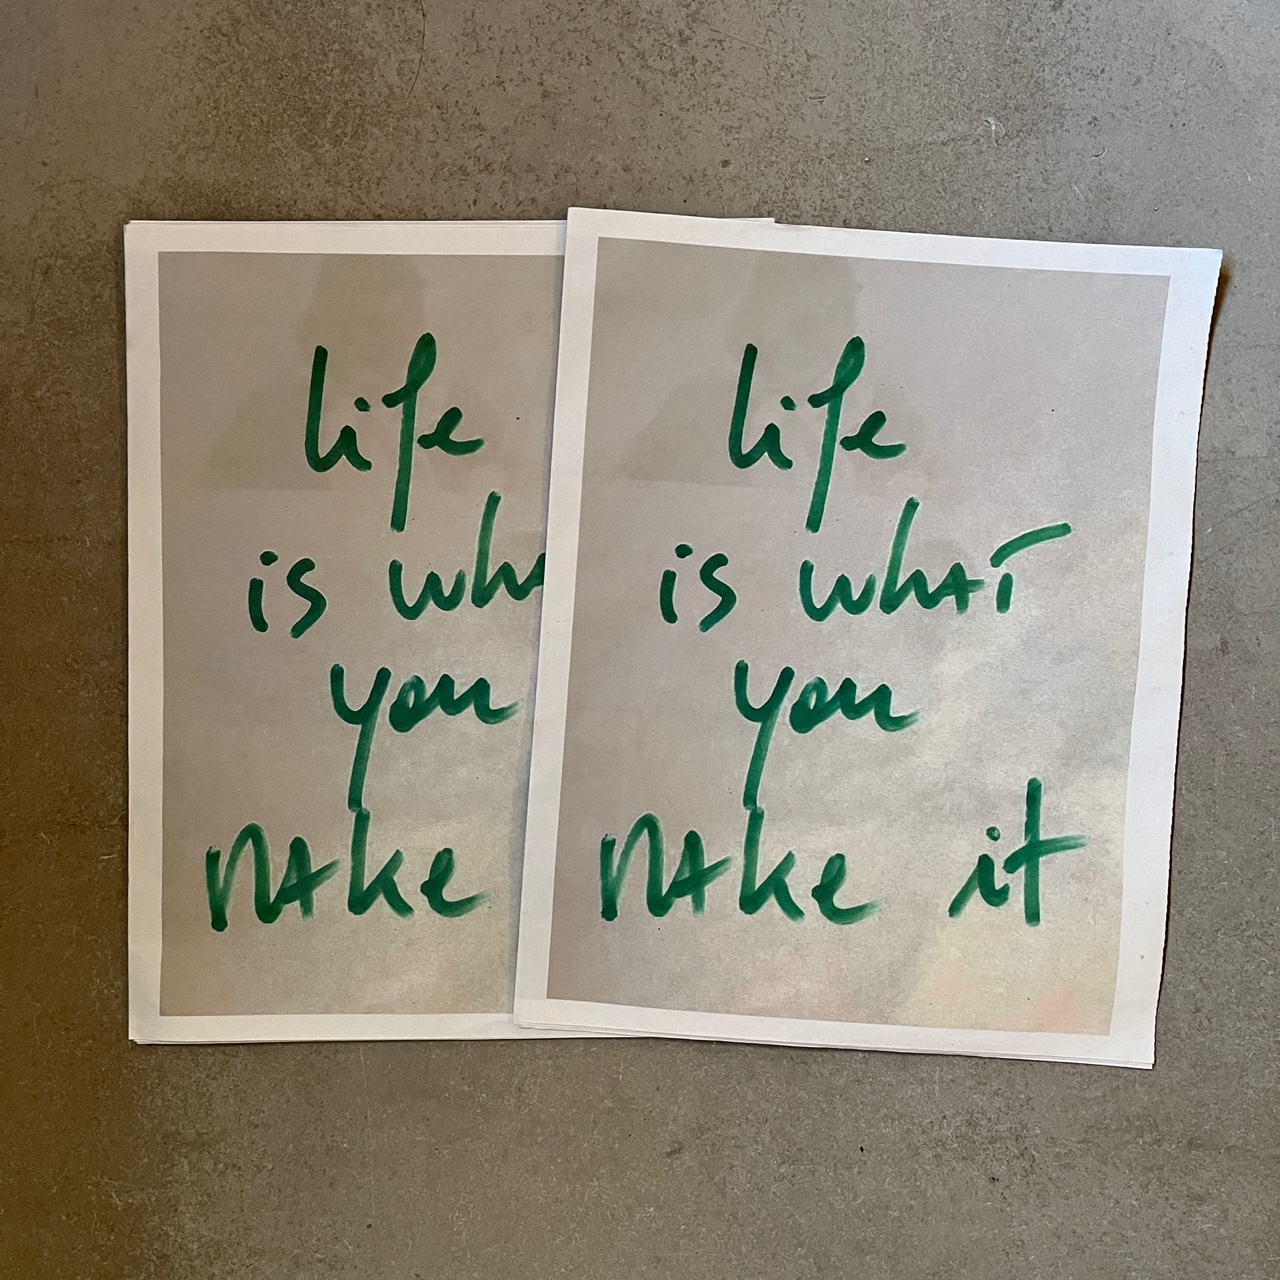 life
is wha
you
make
life
is what
you
make it